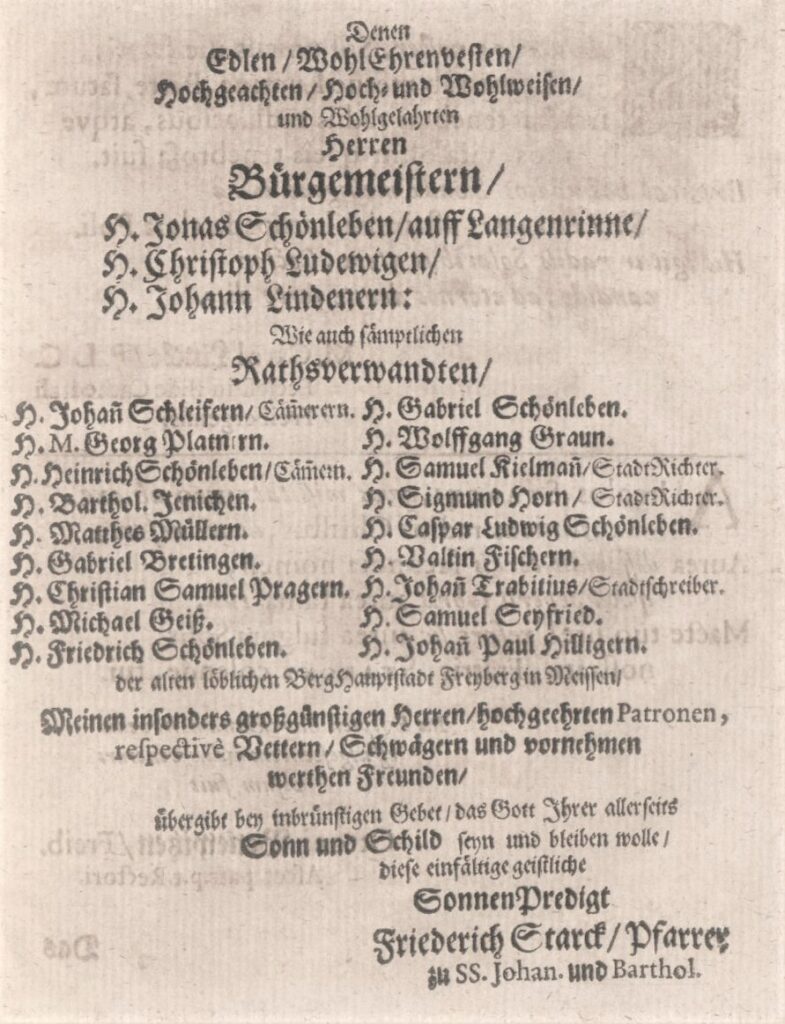 Denen
Edlen / WohlEhrenvesten/
Hochgeachten/ Hoch- und Wohlweisen/
und Wohlgelahrten
Herren
Bürgemeistern/
H. Jonas Schönleben/auff Langenrinne/
H. Christoph Ludewigen/
H. Johann Lindenern:
Wie auch sämptlichen
Rathsverwandten/
H. Johañ Schleifern/ Cäm̃erern.
H. M. Georg Platnern.
H. Heinrich Schönleben/Cäm̃em.
H. Barthol. Jenichen.
H. Matthes Müllern.
H. Gabriel Bretingen.
H. Christian Samuel Pragern.
H. Michael Geiß.
H. Friedrich Schönleben.
H. Gabriel Schönleben.
H. Wolffgang Graun.
H. Samuel Kielmañ/StadtRichter.
H. Sigmund Horn/ StadtRichter.
H. Caspar Ludwig Schönleben.
H. Valtin Fischern.
H. Johañ Trabitius/Stadtschreiber.
H. Samuel Seyfried.
H. Johañ Paul Hilligern.
der alten löblichen BergHauptstadt Freyberg in Meissen/
Meinen insonders großgünstigen Herren/hochgeehrten Patronen,
respectivè Vettern/ Schwägern und vornehmen
werthen Freunden/
übergibt bey inbrünstigen Gebet/das Gott Ihrer allerseits
Sonn und Schild seyn und bleiben wolle/
diese einfältige geistliche
SonnenPredigt
Friederich Starck/ Pfarrer
zu SS. Johan. und Barthol.